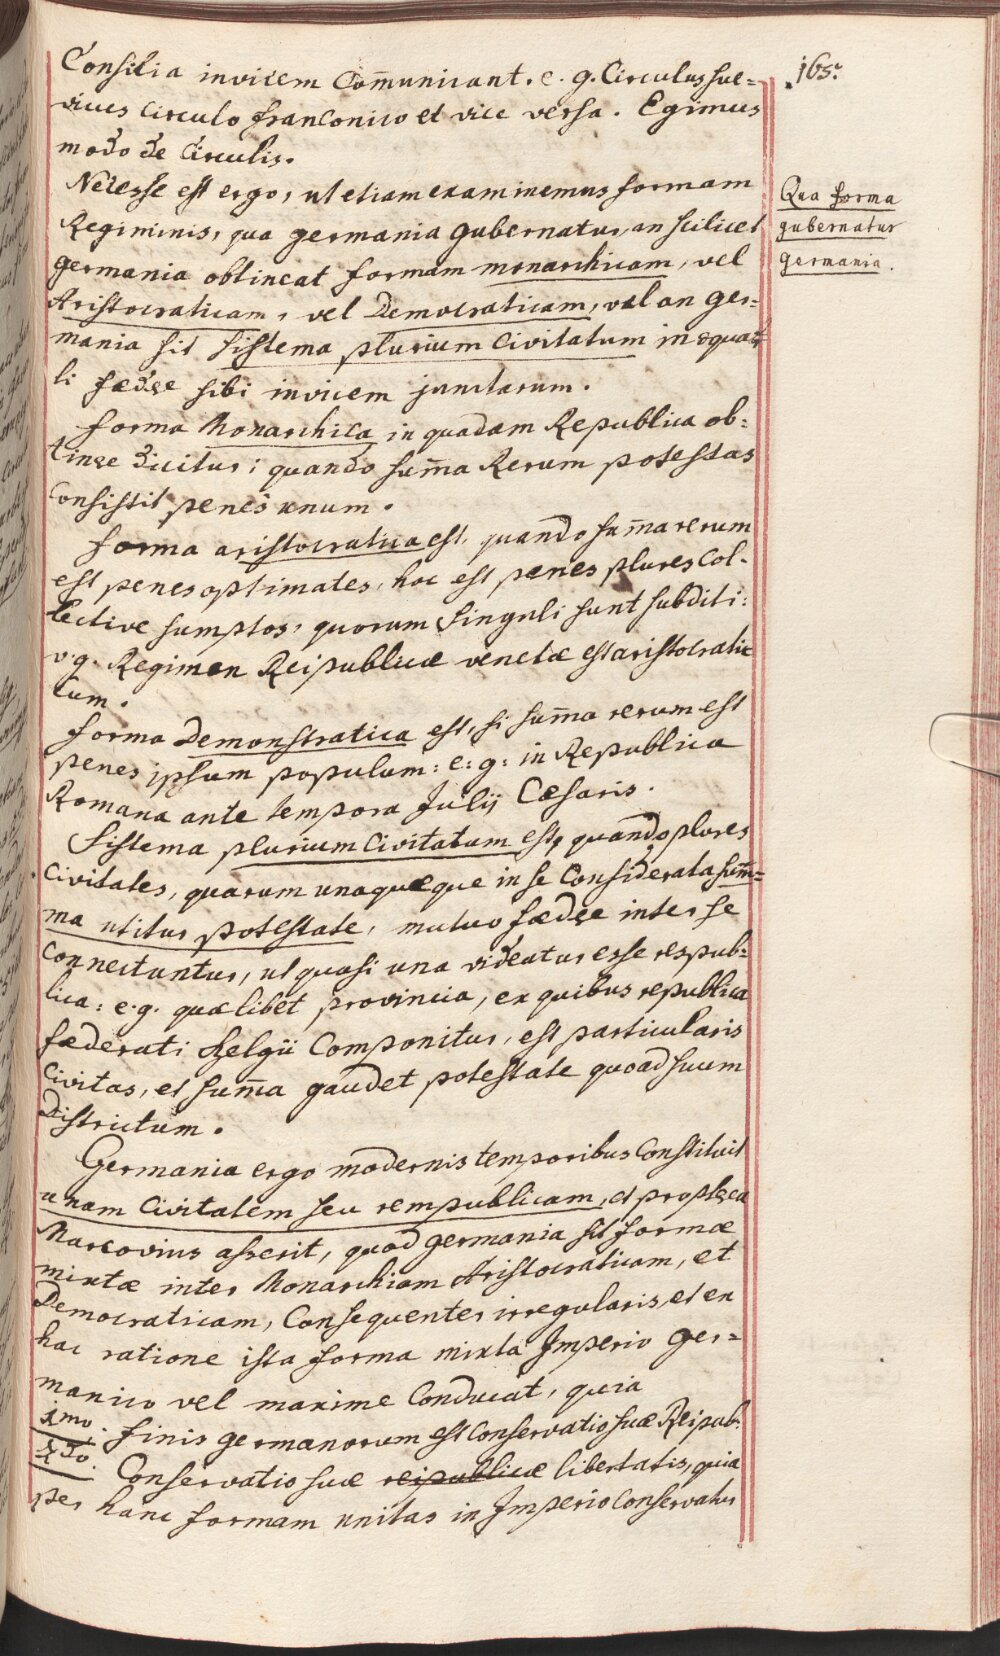 165.
Consilia invicem Com̃unicant. e. g. Circulus sue=
vicus Circulo franConico et vice versa. Egimus
modo de Circulis.
Necesse est ergo, ut etiam examinemus formam
Regiminis, qua germania gubernatur, an scilicet
germania obtineat formam monarchicam, vel
Aristocraticam, vel Democraticam, vel an ger=
mania sit sistema plurium Civitatum in æqua=
li fœdere sibi invicem junctarum.
Qua forma
gubernatur
germania.
forma Monarchica in quadam Republica ob=
tinere dicitur; quando sum̃a Rerum potestas
Consistit penes unum.
forma aristocratica est, quando sum̃a rerum
est penes optimates, hoc est penes plures Col-
lective sumptos, quorum singuli sunt subditi:
v. g. Regimen Reipublicæ venetæ est aristocratic
cum.
forma Demonstratica est, si sum̃a rerum est
penes ipsum populum: e: g: in Republica
Romana ante tempora Julij Cæsaris.
Sistema plurium Civitatum est, quando plures
Civitates, quarum unaquæque in se Considerata sum̃=
ma utitur potestate, mutuo fœdere inter se
Connectuntur, ut quasi una videatur esse respub=
lica: e. g. quælibet provincia, ex quibus republica
fæderati Belgii Componitur, est particularis
Civitas, et sum̃a gaudet potestate quoad suum
Districtum.
Germania ergo modernis temporibus Constituit
unam Civitatem seu rempublicam, et propterea
Marcovius asserit, quod germania sit formæ
mixtæ inter Monarchiam Aristocraticam, et
Democraticam, Consequenter irregularis, et ex
hac ratione ista forma mixta Imperio ger=
manico vel maxime Conducat, quia
1mo. finis germanorum est Conservatio suæ Reipub.
2do. Conservatio suæ reipublicæ libertatis, quia
per hanc formam unitas in Imperio Conservatur